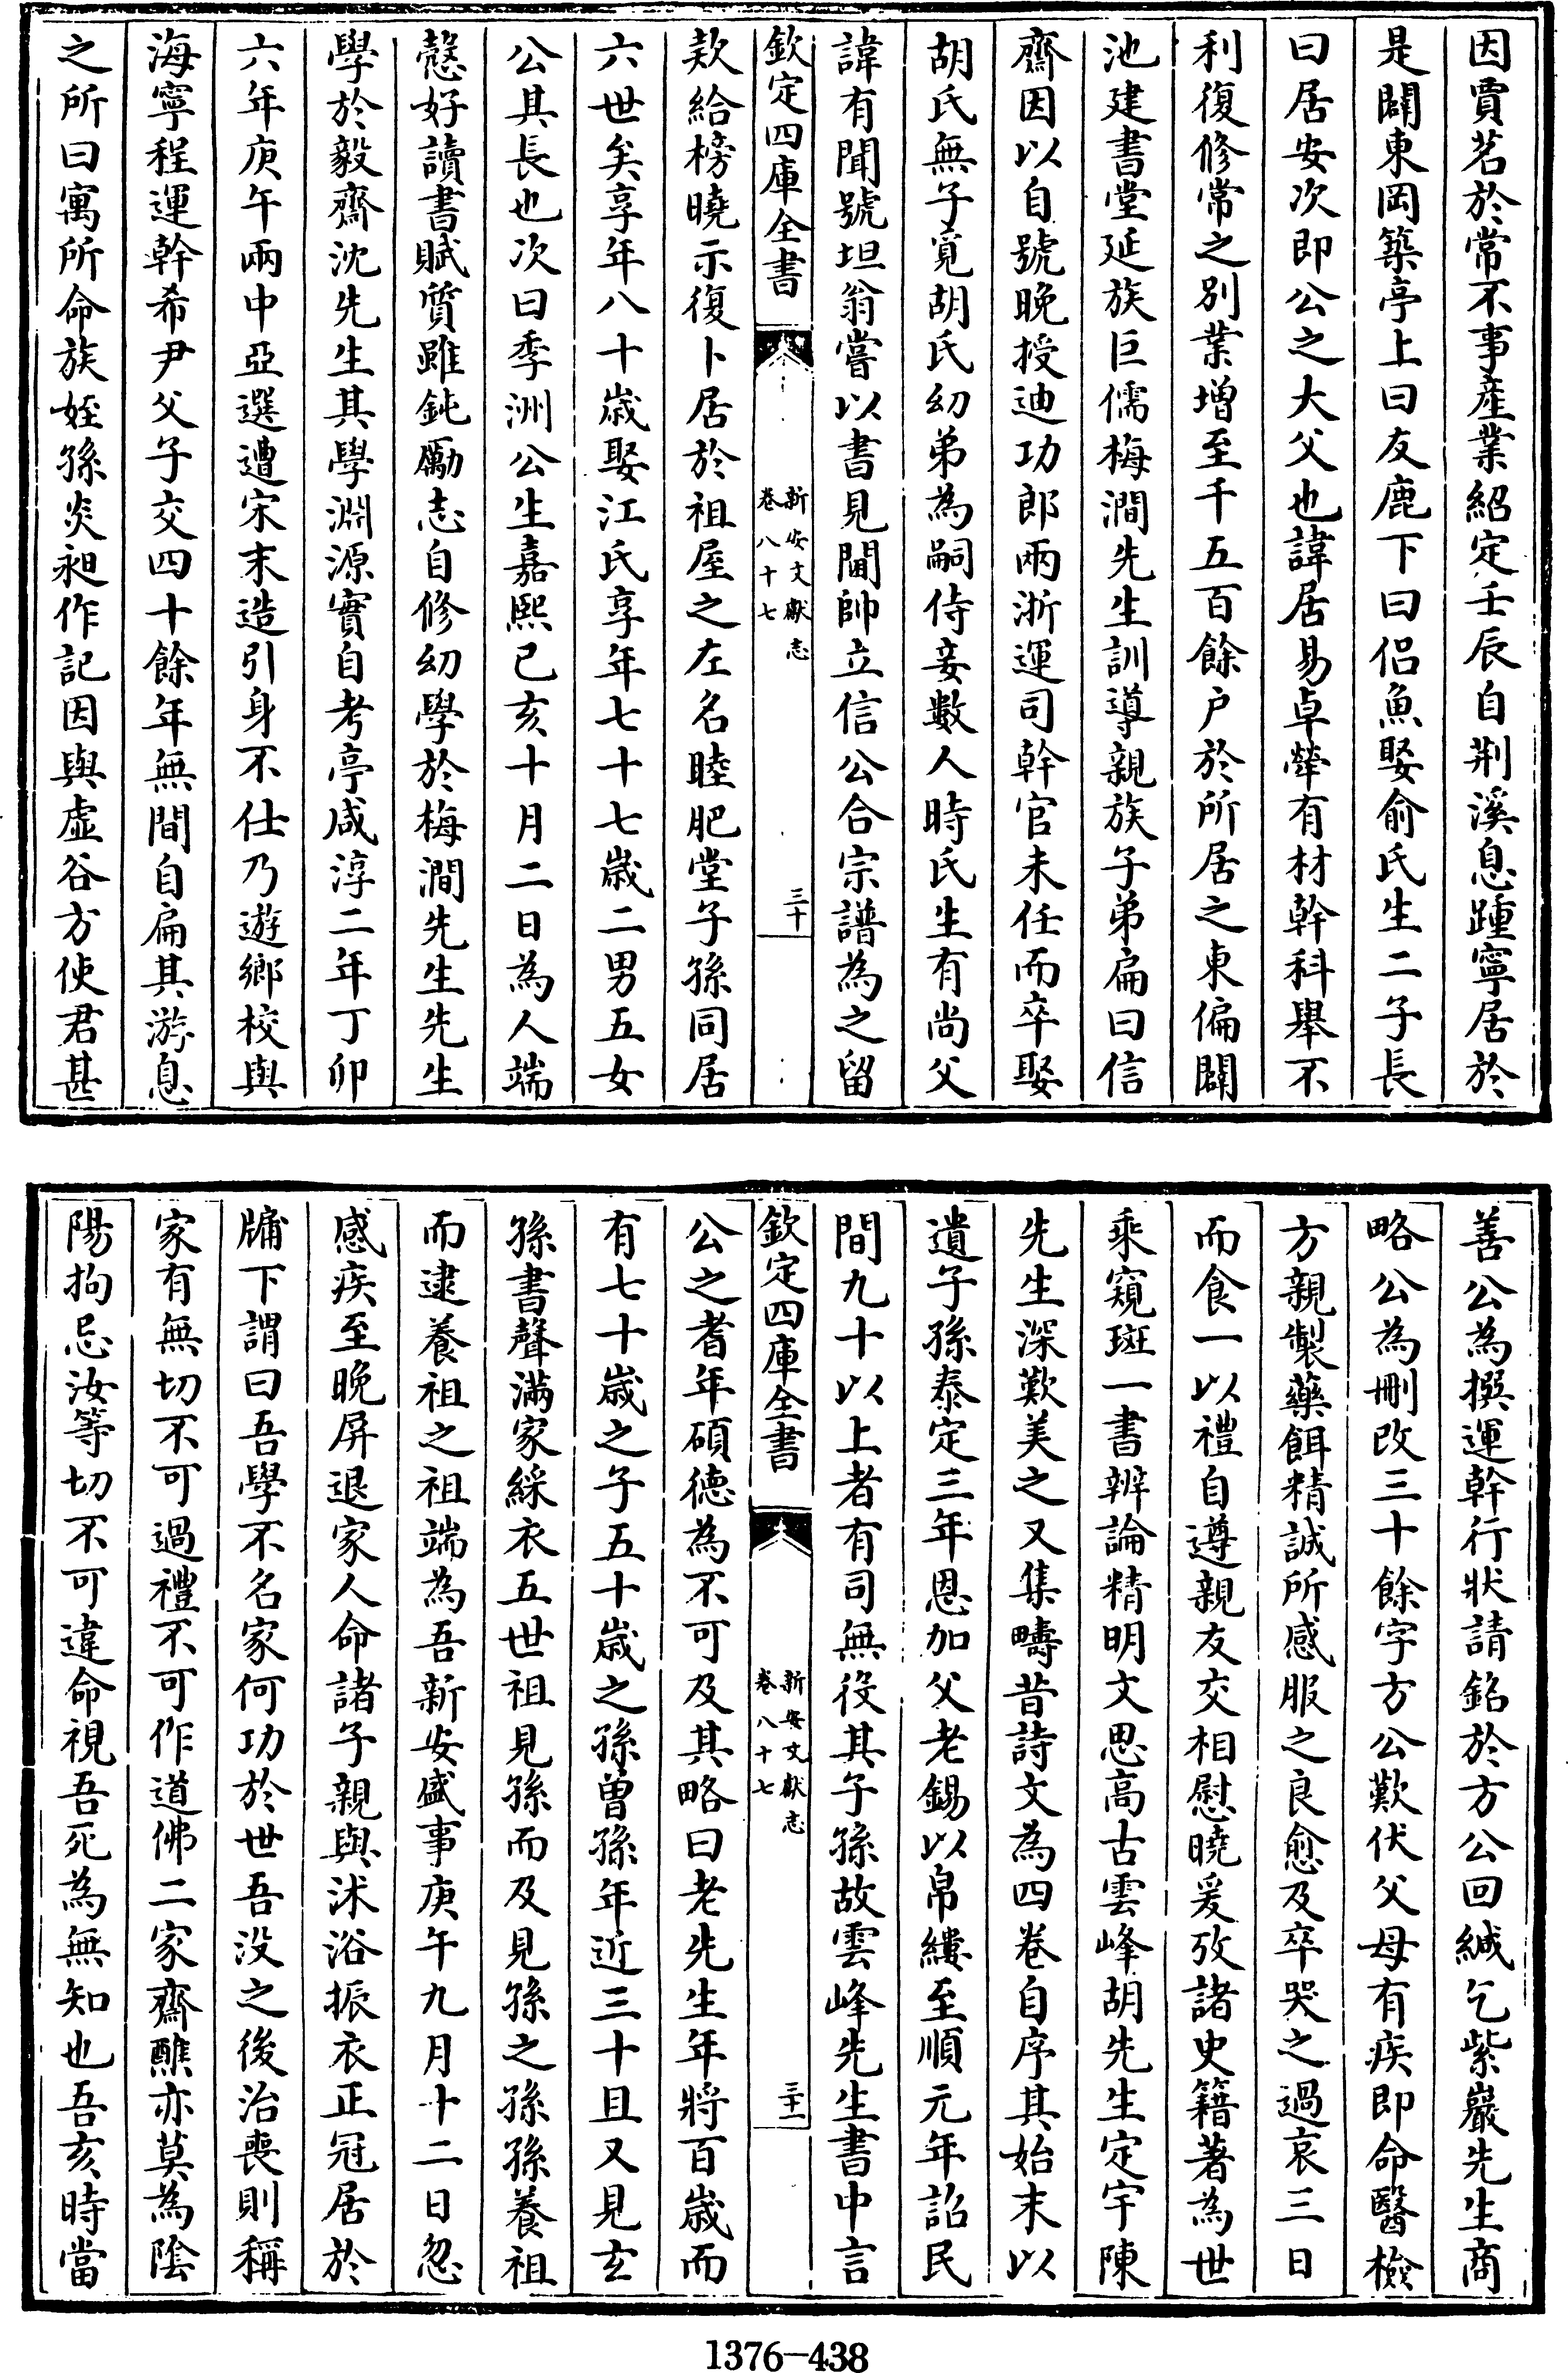 因賈茗於常不事産業紹定壬辰自荆溪息踵寧居於
是闢東岡築亭上曰友鹿下曰侣魚娶俞氏生二子長
曰居安次即公之大父也諱居易卓犖有材幹科舉不
利復修常之别業增至千五百餘户於所居之東偏闢
池建書堂延族巨儒梅澗先生訓導親族子弟扁曰信
齋因以自號晩授迪功郎兩浙運司幹官未任而卒娶
胡氏無子覓胡氏幻弟為嗣侍妾數人時氏生有尚父
諱有聞號坦翁嘗以書見閫帥立信公合宗譜為之留
欽定四庫全書
新安文獻志
卷八十七
三十
欵給榜曉示復卜居於祖屋之左名睦肥堂子孫同居
六世矣享年八十歳娶江氏享年七十七歳二男五女
公其長也次曰季洲公生嘉熙己亥十月二日為人端
慤好讀書賦質雖鈍勵志自修幼學於梅澗先生先生
學於毅齋沈先生其學淵源實自考亭咸淳二年丁卯
六年庚午兩中亞選遭宋末造引身不仕乃遊鄉校與
海寧程運幹希尹父子交四十餘年無間自扁其游息
之所曰寓所命族姪孫炎昶作記因與虚谷方使君甚
善公為撰運幹行狀請銘於方公回緘乞紫巖先生商
略公為刪改三十餘字方公歎伏父母有疾即命醫檢
方親製藥餌精誠所感服之良愈及卒哭之過哀三日
而食一以禮自遵親友交相慰曉爰攷諸史籍著為世
乘窺斑一書辨論精明文思高古雲峰胡先生定宇陳
先生深歎美之又集疇昔詩文為四卷自序其始末以
遺子孫泰定三年恩加父老錫以帛纀至順元年詔民
間九十以上者有司無役其子孫故雲峰先生書中言
欽定四庫全書
新安文獻志
卷八十七
三十一
公之耆年碩德為不可及其略曰老先生年將百歳而
有七十歳之子五十歳之孫曾孫年近三十且又見玄
孫書聲滿家綵衣五世祖見孫而及見孫之孫孫養祖
而逮養祖之祖端為吾新安盛事庚午九月十二日忽
感疾至晚屏退家人命諸子親與沐浴振衣正冠居於
牗下謂曰吾學不名家何功於世吾没之後治喪則稱
家有無切不可過禮不可作道佛二家齋醮亦莫為陰
陽拘忌汝等切不可違命視吾死為無知也吾亥時當
1376—438